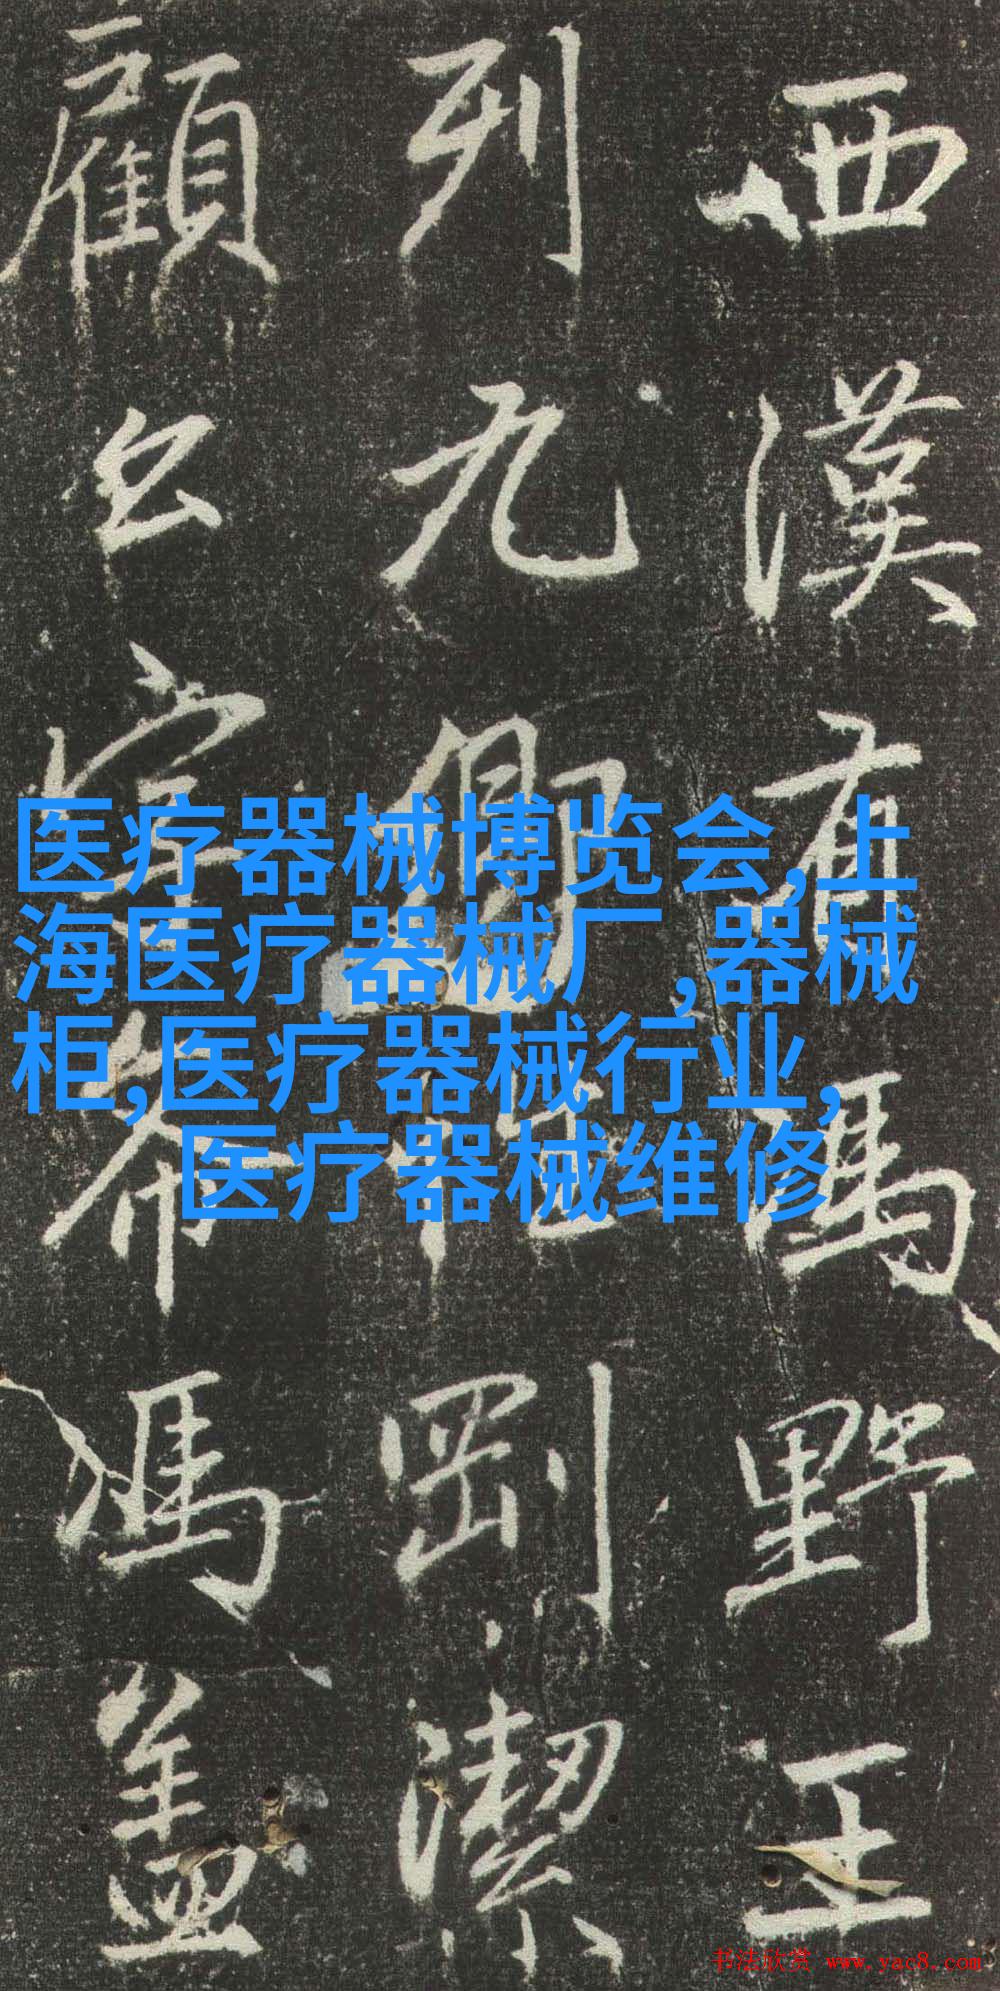 西漢有馮野王
列九卿剛潔
顧公希馮蓋
医疗器械博览会,上
海医疗器械厂,器械
柜,医疗器械行业,
医疗器械维修
书法欣赏 www.yac8.com